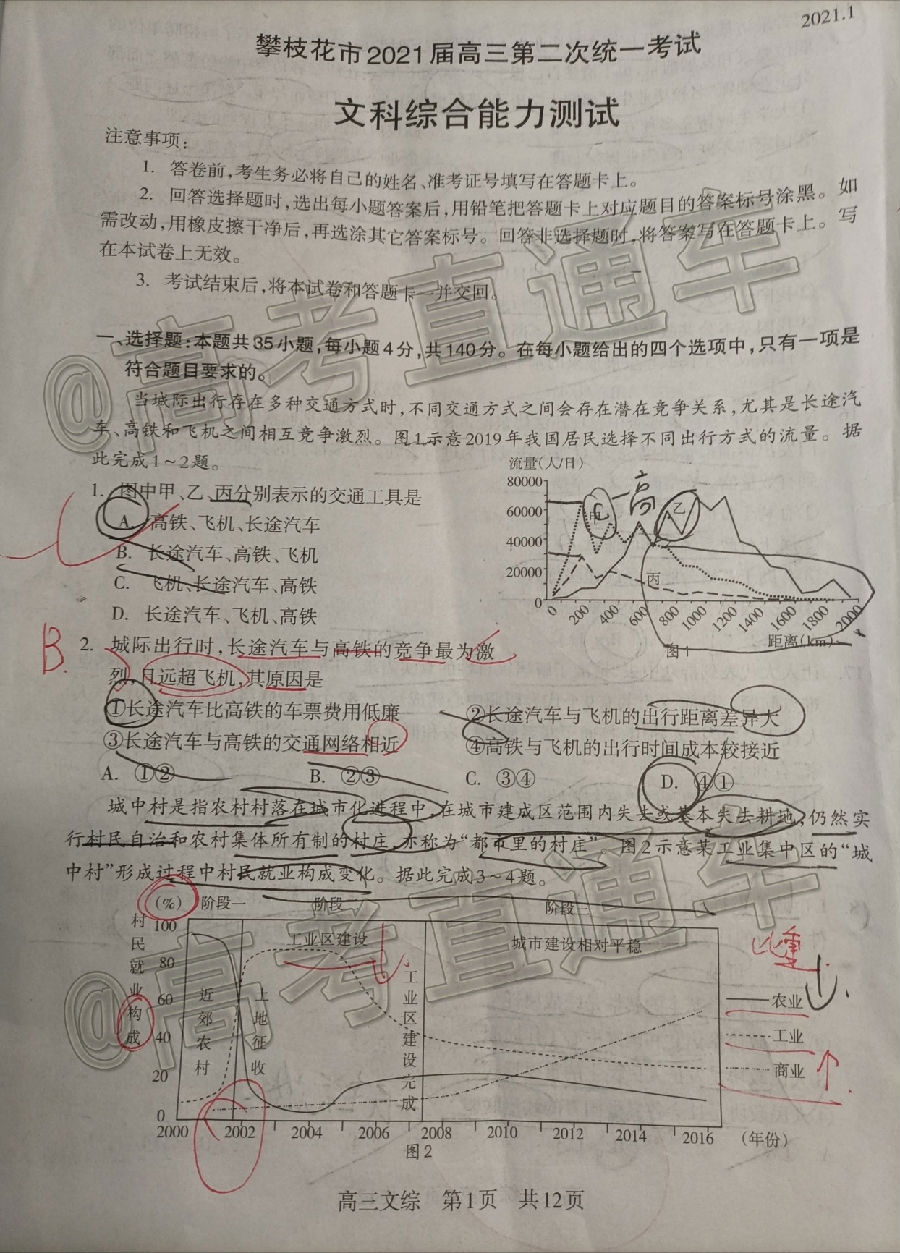 2021.1
攀枝花市2021届高三第二次统一考试
文科综合能力测试
注意事项：
1. 答卷前，考生务必将自己的姓名、准考证号填写在答题卡上。
2. 回答选择题时，选出每小题答案后，用铅笔把答题卡上对应题目的答案标号涂黑。如
需改动，用橡皮擦干净后，再选涂其它答案标号。回答非选择题时，将答案写在答题卡上。写
在本试卷上无效。
3. 考试结束后，将本试卷和答题卡一并交回。
@高考直通车
一、选择题：本题共35小题，每小题4分，共140分。在每小题给出的四个选项中，只有一项是
符合题目要求的。
当城际出行存在多种交通方式时，不同交通方式之间会存在潜在竞争关系，尤其是长途汽
车、高铁和飞机之间相互竞争激烈。图1示意2019年我国居民选择不同出行方式的流量。据
此完成1～2题。
1. 图中甲、乙、丙分别表示的交通工具是
A. 高铁、飞机、长途汽车
B. 长途汽车、高铁、飞机
C. 飞机、长途汽车、高铁
D. 长途汽车、飞机、高铁
流量(人/日)
80000
60000
40000
20000
0
C
高
乙
丙
0 200 400 600 800 1000 1200 1400 1600 1800 2000
距离(km)
图1
B
2. 城际出行时，长途汽车与高铁的竞争最为激
烈，且远超飞机，其原因是
①长途汽车比高铁的车票费用低廉 ②长途汽车与飞机的出行距离差异大
③长途汽车与高铁的交通网络相近 ④高铁与飞机的出行时间成本较接近
A. ①② B. ②③ C. ③④ D. ④①
城中村是指农村村落在城市化进程中，在城市建成区范围内失去或基本失去耕地，仍然实
行村民自治和农村集体所有制的村庄，亦称为“都市里的村庄”。图2示意某工业集中区的“城
中村”形成过程中村民就业构成变化。据此完成3～4题。
(%) 阶段一 阶段 阶段
村民就业构成
100
80
60
40
20
0
近郊农村
土地征收
工业区建设
工业区建设完成
城市建设相对平稳
比重
农业
工业
商业
2000 2002 2004 2006 2008 2010 2012 2014 2016 (年份)
图2
@高考直通车
高三文综 第1页 共12页